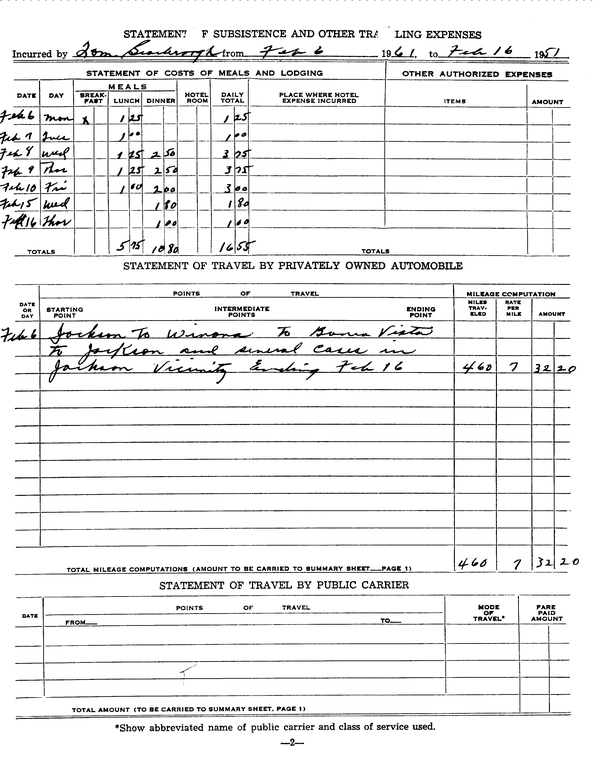 STATEMENT F SUBSISTENCE AND OTHER TRA LING EXPENSES
Incurred by Tom Scarbrough from Feb 6 1961, to Feb 16 1951
STATEMENT OF COSTS OF MEALS AND LODGING OTHER AUTHORIZED EXPENSES
MEALS
DATE DAY BREAK-FAST LUNCH DINNER HOTEL ROOM DAILY TOTAL PLACE WHERE HOTEL EXPENSE INCURRED ITEMS AMOUNT
Feb 6 Mon x 1 25 1 25
Feb 7 Tues 1 00 1 00
Feb 8 Wed 1 25 2 50 3 75
Feb 9 Thor 1 25 2 50 3 75
Feb 10 Fri 1 00 2 00 3 00
Feb 15 Wed 1 80 1 80
Feb 16 Thor 1 00 1 00
TOTALS 5 75 10 80 16 55 TOTALS
STATEMENT OF TRAVEL BY PRIVATELY OWNED AUTOMOBILE
DATE OR DAY POINTS OF TRAVEL MILEAGE COMPUTATION
STARTING POINT INTERMEDIATE POINTS ENDING POINT MILES TRAV-ELED RATE PER MILE AMOUNT
Feb 6 Jackson To Winona To Buna Vista
to Jackson and several cases in
Jackson Vicinity Ending Feb 16 460 7 32 20
TOTAL MILEAGE COMPUTATIONS (AMOUNT TO BE CARRIED TO SUMMARY SHEET—PAGE 1) 460 7 32 20
STATEMENT OF TRAVEL BY PUBLIC CARRIER
DATE POINTS OF TRAVEL MODE OF TRAVEL* FARE PAID AMOUNT
FROM— TO—
TOTAL AMOUNT (TO BE CARRIED TO SUMMARY SHEET, PAGE 1)
*Show abbreviated name of public carrier and class of service used.
—2—